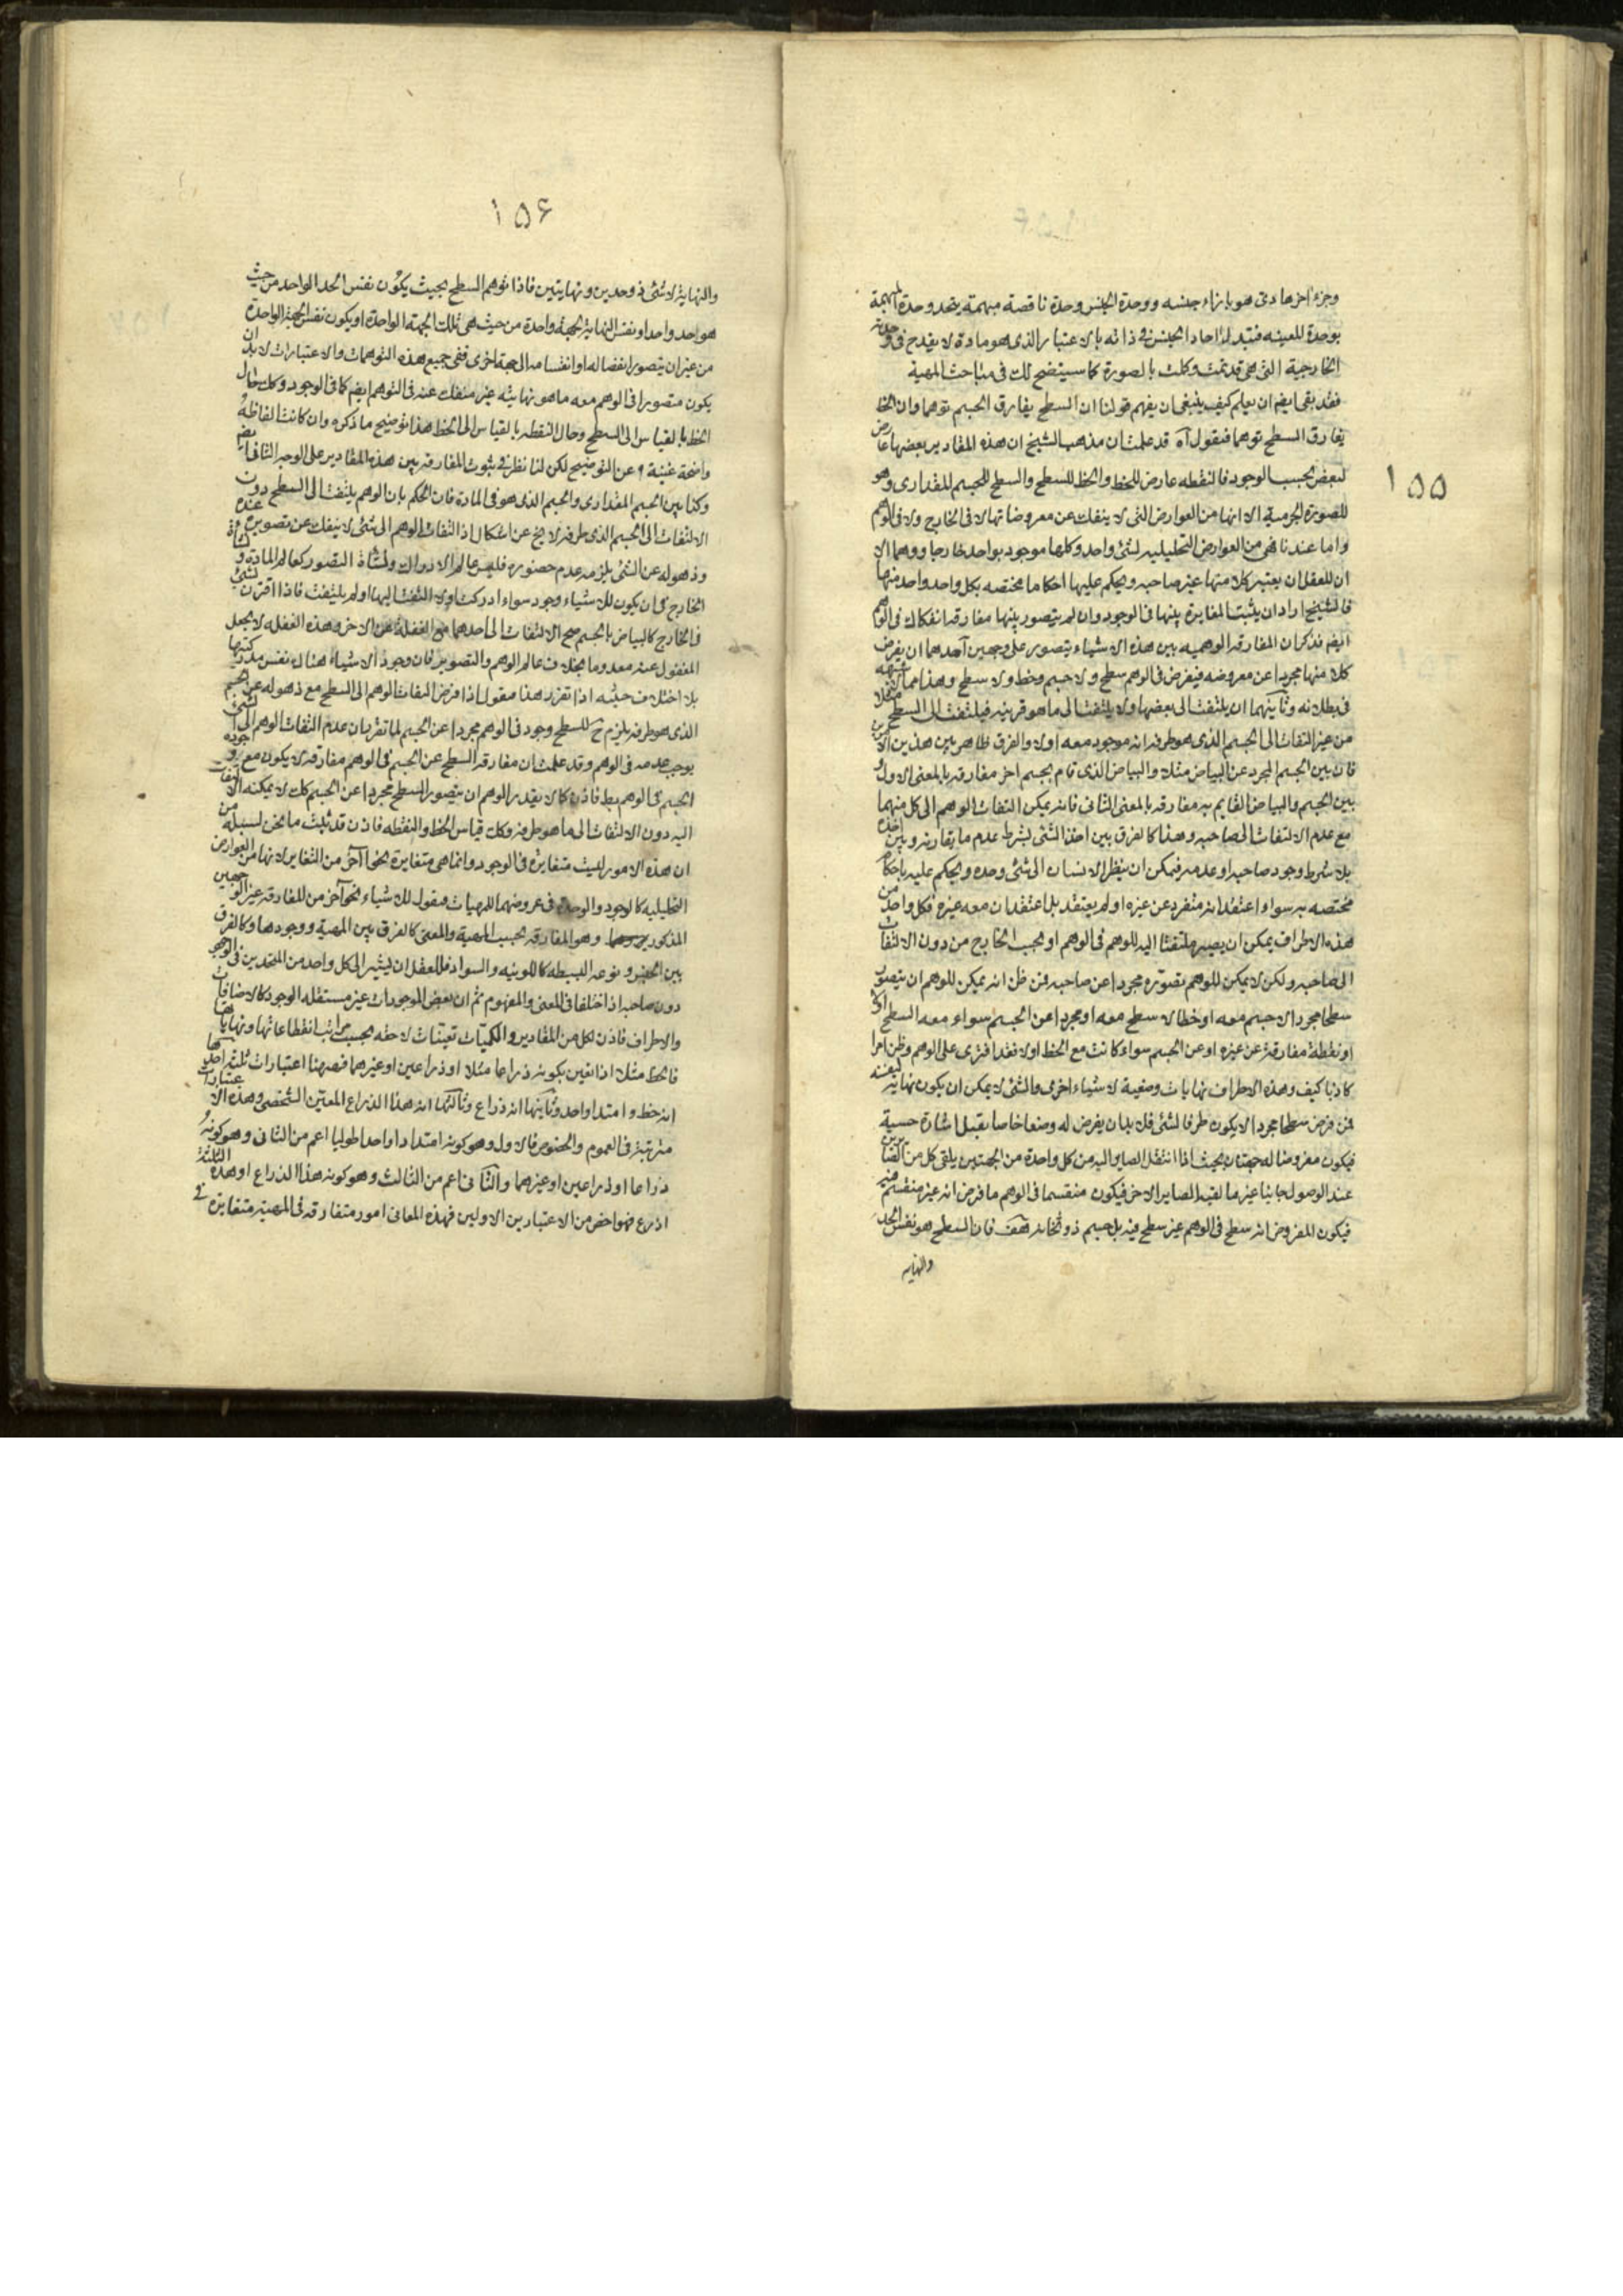 ١٥٥
وجزء اخرها دى هو بازاء جنسه ووحدة الجنس وحدة ناقصة مبهمة يتحد وحدة المبهمة
بوحدة المعينه فتبدل احاد الجنس فى ذاته بالاعتبار الذى هو مادة لا يقدح فى وحدته
الخارجية التى هى قد تمت وكلت بالصورة كما سيتضح لك فى مباحث المهية
فقد بقى ايضا ان يعلم كيف ينبغى ان يفهم قولنا ان السطح يفارق الجسم توهما وان الخط
يفارق السطح توهما فنقول آه قد علمت ان مذهب الشيخ ان هذه المقادير بعضها عارض
لبعض بحسب الوجود فالنقطه عارض للخط والخط للسطح والسطح للجسم المقدارى وهو
للصورة الجرمية الا انها من العوارض التى لا ينفك عن معروضاتها لا فى الخارج ولا فى الوهم
واما عندنا فهى من العوارض التحليليه لشئ واحد وكلها موجود بوجود واحد خارجا ووهما الا
ان للعقل ان يعتبر كلا منها غير صاحبه ويحكم عليها احكاما مختصه بكل واحد واحد منها
فالشيخ اراد ان يثبت المغايرة بينها فى الوجود وان لم يتصور بينها مفارقه انفكاك فى الوهم
ايضم فذكر ان المفارقه الوهميه بين هذه الاشياء يتصور على وجهين احدهما ان يفرض
كلا منها مجردا عن معروضه فيفرض فى الوهم سطح ولا جسم وخط ولا سطح وهذا مما لا شبهه
فى بطلانه وثانيهما ان يلتفت الى بعضها ولا يلتفت الى ما هو قرينه فيلتفت الى السطح مثلا
من غير التفات الى الجسم الذى هو طرفه انه موجود معه او لا والفرق ظاهر بين هذين الامرين
فان بين الجسم المجرد عن البياض مثلا والبياض الذى قام بجسم اخر مفارقه بالمعنى الاول و
بين الجسم والبياض القايم به مفارقه بالمعنى الثانى فانه يمكن التفات الوهم الى كل منهما
مع عدم الالتفات الى صاحبه وهذا كالفرق بين اخذ الشئ بشرط عدم ما يقارنه وبين اخذه
بلا شرط وجود صاحبه او عدمه فيمكن ان ينظر الانسان الى شئ وحده ويحكم عليه باحكام
مختصه به سواء اعتقد انه منفرد عن غيره او لم يعتقد بل اعتقد ان معه غيره فكل واحد من
هذه الاطراف يمكن ان يصير ملتفتا اليه للوهم فى الوهم او بحسب الخارج من دون الالتفات
الى صاحبه ولكن لا يمكن للوهم تصوره مجردا عن صاحبه فمن ظن انه يمكن للوهم ان يتصور
سطحا مجردا لا جسم معه او خطا لا سطح معه او مجردا عن الجسم سواء معه السطح او لا
او نقطة مفارقة عن غيره او عن الجسم سواء كانت مع الخط او لا فقد افترى على الوهم وظن امرا
كاذبا كيف وهذه الاطراف نهايات وضعية لاشياء اخرى والشئ لا يمكن ان يكون نهاية لنفسه
فمن فرض سطحا مجردا لا يكون طرفا لشئ فلا بد ان يفرض له وضعا خاصا يقبل اشارة حسية
فيكون مفروضا له جهتان بحيث اذا انتقل الصاير اليه من كل واحدة من الجهتين يلقى كل من الصايرين
عند الوصول جانبا غير ما لقيه الصاير الاخر فيكون منقسما فى الوهم ما فرض انه غير منقسم فيه
فيكون المفروض انه سطح فى الوهم غير سطح فيه بل جسم ذو ثخانه هف فان السطح هو نفس الحد
والنهاية
١٥٦
والنهاية لا شئ ذو حدين ونهايتين فاذا توهم السطح بحيث يكون نفس الحد الواحد من حيث
هو واحد واحد او نفس النهاية لجهة واحدة من حيث هى تلك الجهة الواحدة او يكون نفس الجهة الواحدة
من غير ان يتصور انفصاله او انقسامه الى جهة اخرى ففى جميع هذه التوهمات والاعتبارات لا بد ان
يكون متصورا فى الوهم معه ما هو نهايته غير منفك عنه فى التوهم ايضم كما فى الوجود وكك حال
الخط بالقياس الى السطح وحال النقطه بالقياس الى الخط هذا توضيح ما ذكره وان كانت الفاظه
واضحة غنية عن التوضيح لكن لنا نظر فى ثبوت المفارقه بين هذه المقادير على الوجه الثانى ايضم
وكذا بين الجسم المقدارى والجسم الذى هو فى المادة فان الحكم بان الوهم يلتفت الى السطح دون
الالتفات الى الجسم الذى طرفه لا يخ عن اشكال اذ التفات الوهم الى شئ لا ينفك عن تصويره عنده
وذهوله عن الشئ يلزمه عدم حضوره فليس عالم الادراك ونشاة التصور كعالم المادة ونشاة
الخارج فى ان يكون للاشياء وجود سواء ادركت او لا التفت اليها او لم يلتفت فاذا اقترن شئ بشئ
فى الخارج كالبياض بالجسم صح الالتفات الى احدهما مع الغفلة عن الاخر وهذه الغفله لا يجعل
المغفول عنه معدوما بخلاف عالم الوهم والتصوير فان وجود الاشياء هناك نفس مدركيتها
بلا اختلاف حيثيه اذا تقرر هذا فنقول اذا فرض التفات الوهم الى السطح مع ذهوله عن الجسم
الذى هو طرفه يلزم ح للسطح وجود فى الوهم مجردا عن الجسم لما تقر بان عدم التفات الوهم الى الشئ
يوجب عدمه فى الوهم وقد علمت ان مفارقه السطح عن الجسم فى الوهم مفارقه لا يكون مع وجوده
الجسم فى الوهم بط فاذن كما لا يقدر الوهم ان يتصور السطح مجردا عن الجسم كك لا يمكنه الالتفات
اليه دون الالتفات الى ما هو طرفه وكك قياس الخط والنقطه فاذن قد ثبت ما نحن بسبيله من
ان هذه الامور ليست متغايرة فى الوجود وانما هى متغايرة نحوا آخر من التغاير لانها من العوارض
التحليليه كالوجود والوحدة فى عروضهما للمهيات فنقول للاشياء نحو آخر من المفارقه غير الوجهين
المذكورين وهو المفارقه بحسب المهية والمعنى كالفرق بين المهية ووجودها وكالفرق
بين الجنس ونوعه البسيطه كاللونيه والسواد فللعقل ان يشير الى كل واحد من المتحدين فى الوجود
دون صاحبه اذا اختلفا فى المعنى والمفهوم ثم ان بعض الموجودات غير مستقله الوجود كالاضافات
والاطراف فاذن لكل من المقادير والكميات تعينات لاحقه بحسب مراتب انقطاعاتها ونهاياتها
فالخط مثلا اذا تعين بكونه ذراعا مثلا او ذراعين او غيرهما فههنا اعتبارات ثلثه احدها
انه خط وامتداد واحد وثانيها انه ذراع وثالثها انه هذا الذراع المعين الشخصى وهذه الاعتبارات
مترتبة فى العموم والخصوص فالاول وهو كونه امتدادا واحدا طوليا اعم من الثانى وهو كونه
ذراعا او ذراعين او غيرهما والثانى اعم من الثالث وهو كونه هذا الذراع او هذه الثلثة
اذرع فهو اخص من الاعتبارين الاولين فهذه المعانى امور متفارقه فى المهية متغايرة فى